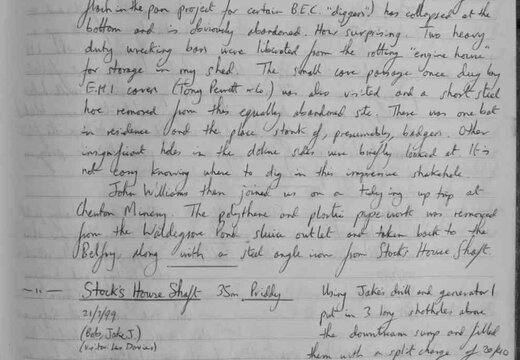 flash in the pan project for certain B.E.C. "diggers") has collapsed at the
bottom and is obviously abandoned. How surprising. Two heavy
duty wrecking bars were liberated from the rotting "engine house"
for storage in my shed. The small cave passage once dug by
E.M.I cavers (Tony Pewett & Co.) was also visited and a short steel
hoe removed from this equally abandoned site. There was one bat
in residence and the place stank of, presumably, badger. Other
insignificant holes in the doline sides were briefly looked at. It is
not easy knowing where to dig in this impressive shakehole.
John Williams then joined us on a tidying up trip at
Chewton Minery. The polythene and plastic pipework was removed
from the Waldegrave Pond sluice outlet and taken back to the
Belfry, along with a steel angle iron from Stock's House Shaft.
- 11 - Stock's House Shaft 35m Priddy
21/7/99
(Bob, Jake J.)
(Visitor: Les Davies)
Using Jake's drill and generator I
put in 3 long shotholes above
the downstream sump and filled
them with a split charge of